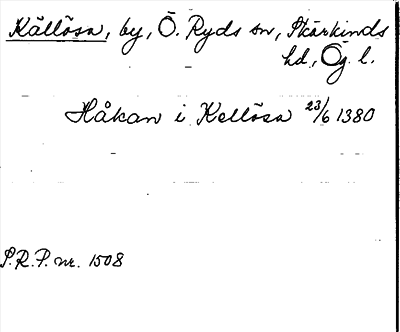 Källösa, by, Ö. Ryds sn, Skärkinds
hd., Ög. l.
Håkan i Kellösa 23/6 1380
S.R.P. nr. 1508